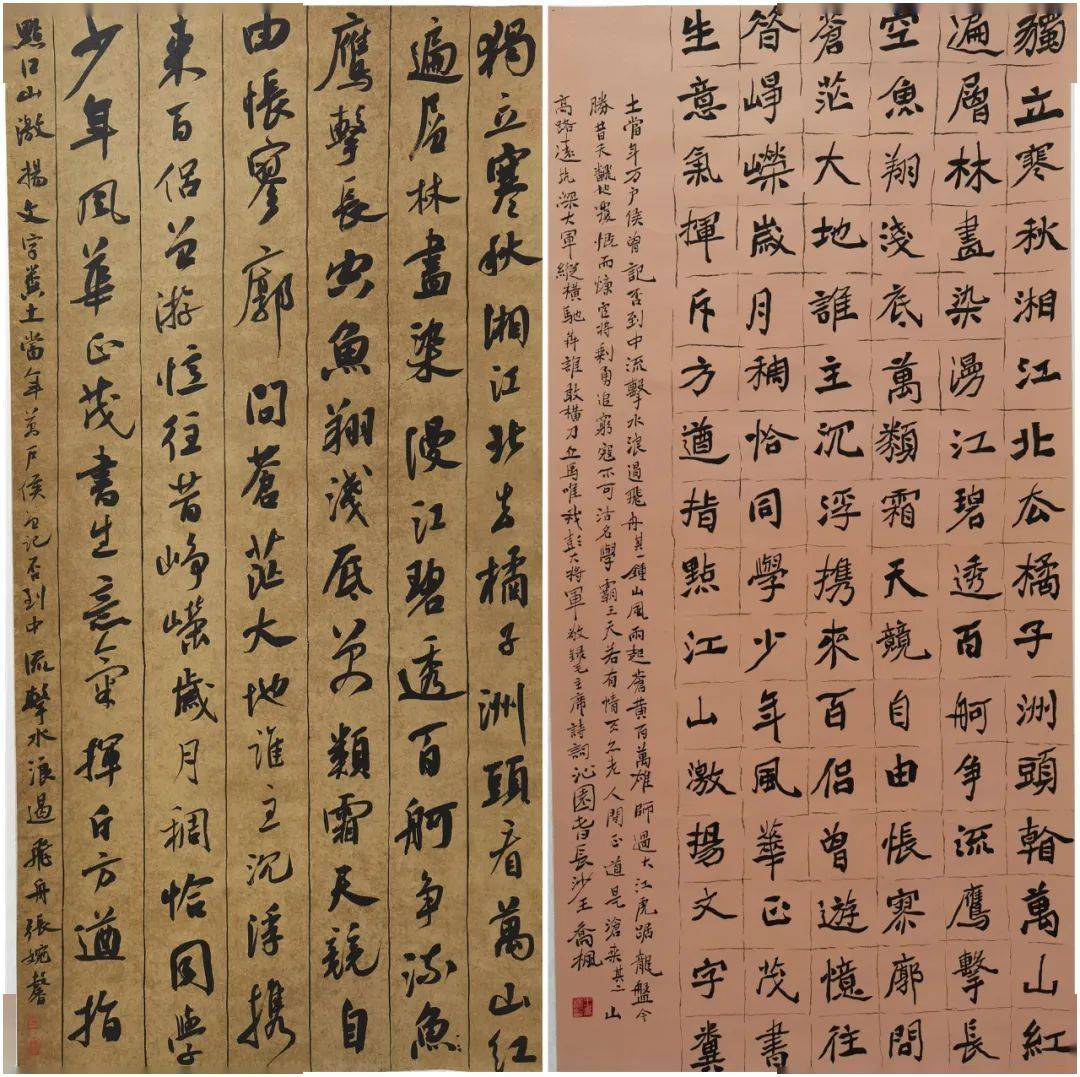 獨立寒秋湘江北去橘子洲頭看萬山红
遍层林盡染漫江碧透百舸争流魚
鹰擊長空魚翔淺底万類霜天競自
由悵寥廓問蒼茫大地誰主沉浮携
来百侣曾游忆往昔崢嶸歲月稠恰同學
少年風華正茂書生意氣揮斥方遒指
點江山激揚文字糞土當年萬户侯曾記否到中流擊水浪遏飛舟張婉馨
獨立寒秋湘江北去橘子洲頭看萬山紅
遍層林盡染漫江碧透百舸争流鷹擊長
空魚翔淺底萬類霜天競自由悵寥廓問
蒼茫大地誰主沉浮携來百侣曾遊憶往
昔崢嶸歲月稠恰同學少年風華正茂書
生意氣揮斥方遒指點江山激揚文字糞
土當年万户侯曾記否到中流擊水浪遏飛舟其一鍾山風雨起蒼黄百萬雄師過大江虎踞龍盤今
勝昔天翻地覆慨而慷宜將剩勇追窮寇不可沽名學霸王天若有情天亦老人間正道是滄桑其二山
高路遠坑深大軍縱橫馳奔誰敢橫刀立馬唯我彭大將軍敬録毛主席詩詞沁園春長沙王喬楓